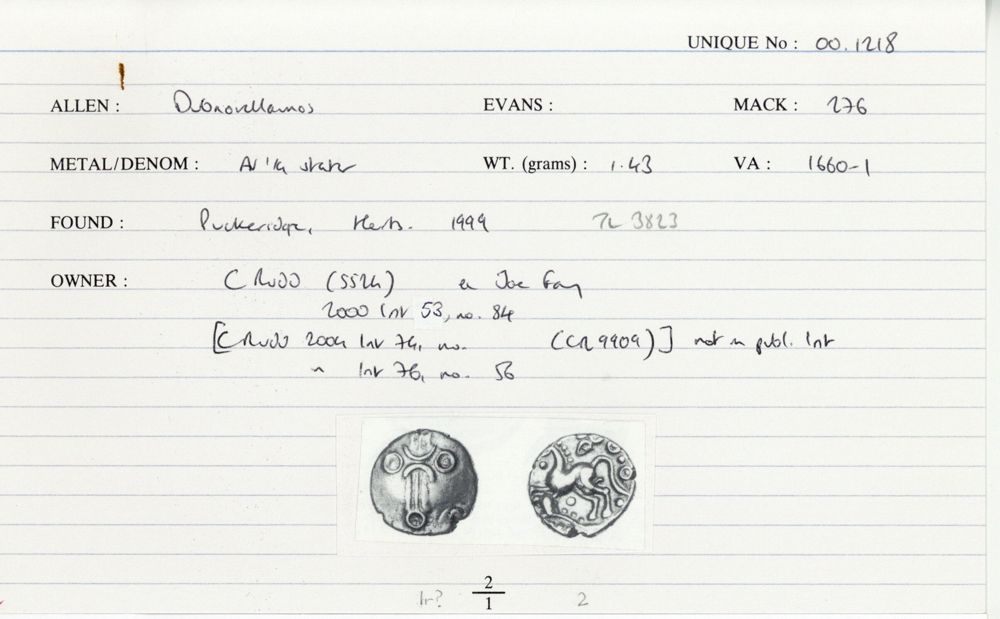 UNIQUE No : 00.1218
ALLEN : Dubnovellaunos EVANS : MACK : 276
METAL/DENOM : AV 1/4 stater WT. (grams) : 1.43 VA : 1660-1
FOUND : Puckeridge, Herts. 1999 TL 3823
OWNER : C Rudd (SS24) ex Joe Gay
2000 list 53, no. 84
[C Rudd 2004 list 74, no. (CR 9909)] not in publ. list
" list 76, no. 56
1r? 2/1 2